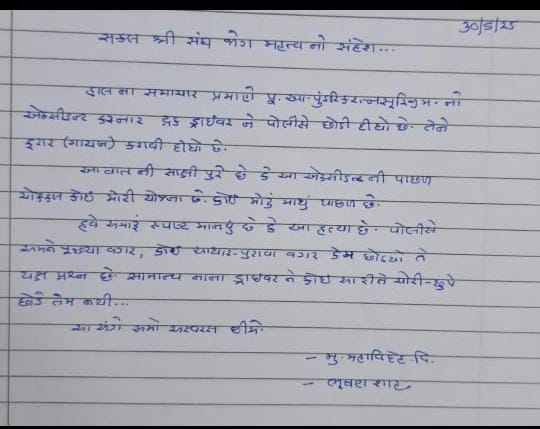 30/5/25
સકલ શ્રી સંઘ જોગ મહત્વ નો સંદેશ...
હાલ ના સમાચાર પ્રમાણે પૂ. આ. પુંડરિકરત્નસૂરિજી મ. નો
એક્સીડન્ટ કરનાર ટ્રક ડ્રાઈવર ને પોલીસે છોડી દીધો છે. તેને
ફરાર (ગાયબ) કરાવી દીધો છે.
આ વાત ની સાક્ષી પુરે છે કે આ એક્સીડન્ટ ની પાછળ
ચોક્કસ કોઈ મોટી યોજના છે. કોઈ મોટું માથું પાછળ છે.
હવે અમારું સ્પષ્ટ માનવું છે કે આ હત્યા છે. પોલીસે
અમને પૂછ્યા વગર, કોઈ આધાર-પુરાવા વગર કેમ છોડ્યો તે
યક્ષ પ્રશ્ન છે. સામાન્ય નાના ડ્રાઈવર ને કોઈ આ રીતે ચોરી-છુપે
છોડે તેમ નથી...
આ અંગે અમો અસ્વસ્થ છીએ.
- મુ. મહાવિદેહ. વિ.
- ભૂષણ શાહ